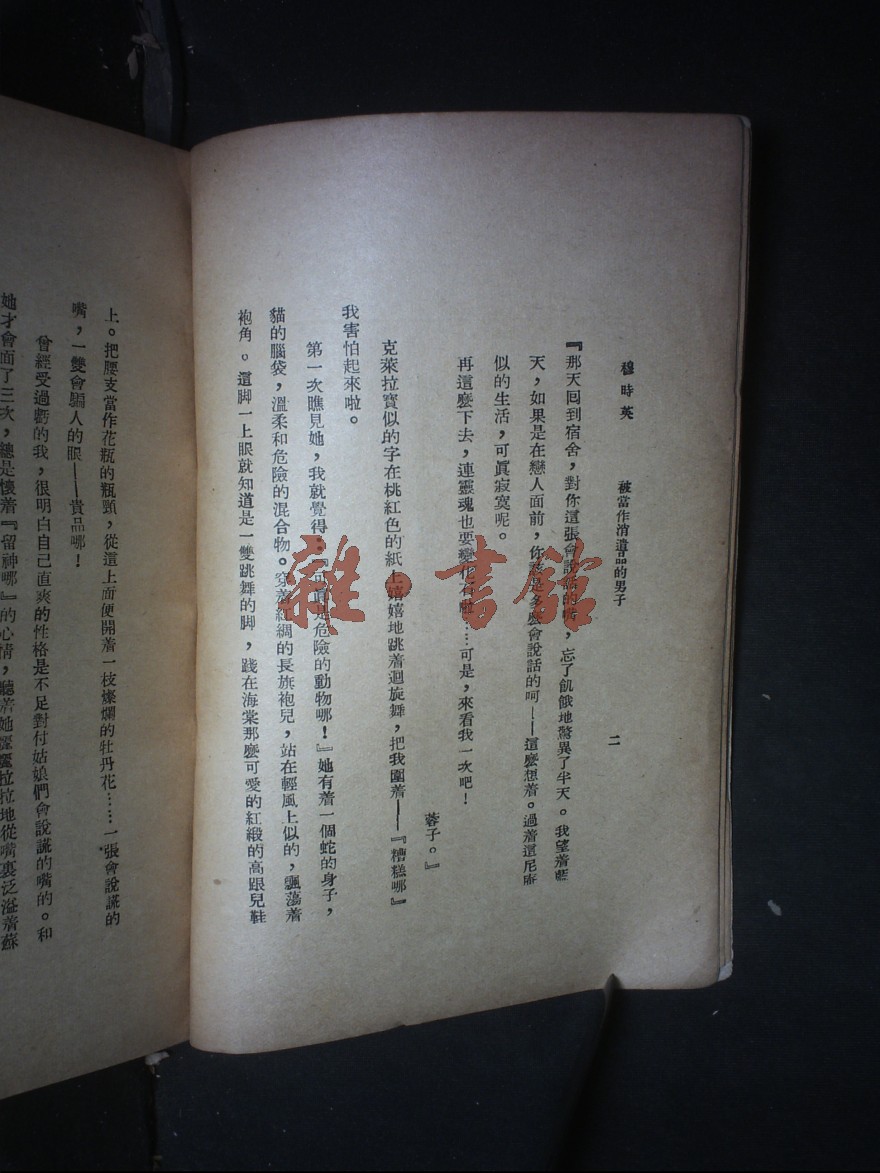 穆時英　被當作消遣品的男子　二
『那天囘到宿舍，對你這張會說話的嘴，忘了飢餓地驚異了半天。我望着藍
天，如果是在戀人面前，你該是多麽會說話的呵——這麽想着。過着這尼庵
似的生活，可眞寂寞呢。
再這麽下去，連靈魂也要變化石啦……可是，來看我一次吧！
蓉子。』
克萊拉寶似的字在桃紅色的紙上嘻嘻地跳着迴旋舞，把我圍着——『糟糕哪』
我害怕起來啦。
第一次瞧見她，我就覺得：『可眞是危險的動物哪！』她有着一個蛇的身子，
貓的腦袋，溫柔和危險的混合物。穿着紅綢的長旗袍兒，站在輕風上似的，飄蕩着
袍角。這脚一上眼就知道是一雙跳舞的脚，踐在海棠那麽可愛的紅緞的高跟兒鞋
上。把腰支當作花瓶的瓶頸，從這上面便開着一枝燦爛的牡丹花……一張會說謊的
嘴，一雙會騙人的眼——貴品哪！
曾經受過虧的我，很明白自己直爽的性格是不足對付姑娘們會說謊的嘴的。和
她才會面了三次，總是懷着『留神哪』的心情，聽着她麗麗拉拉地從嘴裏泛溢着蘇
雜·書館